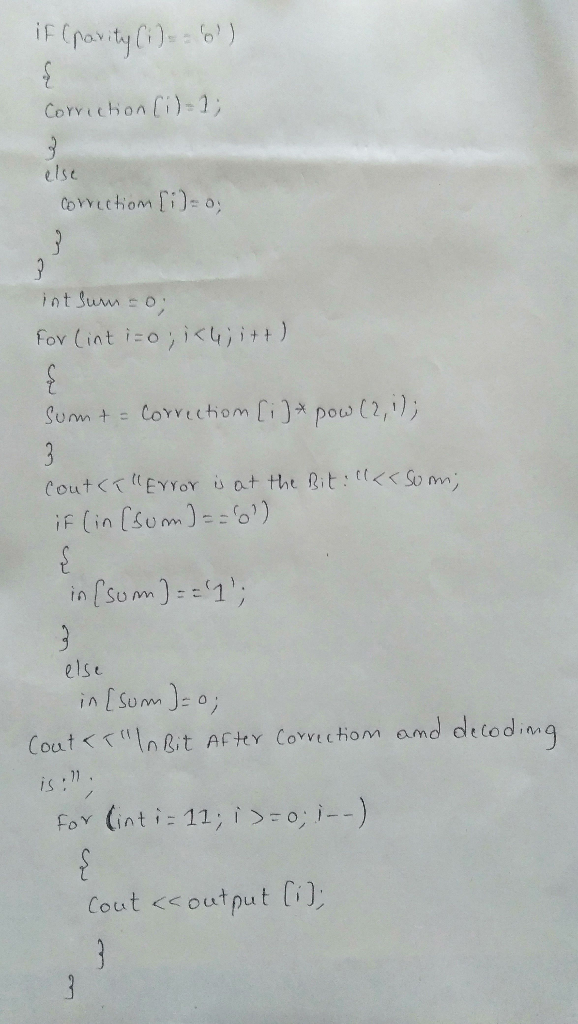 if (parity[i]=='0')
{
Correction[i]=1;
}
else
correction[i]=0;
}
}
int Sum=0;
For (int i=0; i<4; i++)
{
Sum+= Correction[i]* pow(2,i);
}
Cout<<"Error is at the Bit:"<<Som;
iF (in[Sum]=='0')
{
in[Som]=='1';
}
else
in[Sum]=0;
Cout<<"\nBit AFter Correction and decoding
is:";
For (int i=11; i>=0; i--)
{
Cout <<output[i];
}
}